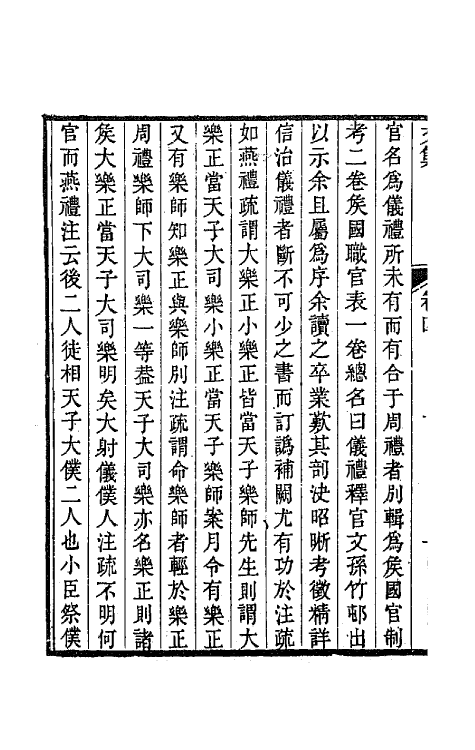 官名爲儀禮所未有而有合于周禮者別輯爲矦國官制
考二卷矦國職官表一卷總名曰儀禮釋官文孫竹邨出
以示余且屬爲序余讀之卒業歎其剖決昭晰考徵精詳
信治儀禮者斷不可少之書而訂譌補闕尤有功於注疏
如燕禮疏謂大樂正小樂正皆當天子樂師先生則謂大
樂正當天子大司樂小樂正當天子樂師案月令有樂正
又有樂師知樂正與樂師別注疏謂命樂師者輕於樂正
周禮樂師下大司樂一等葢天子大司樂亦名樂正則諸
矦大樂正當天子大司樂明矣大射儀僕人注疏不明何
官而燕禮注云後二人徒相天子大僕二人也小臣祭僕